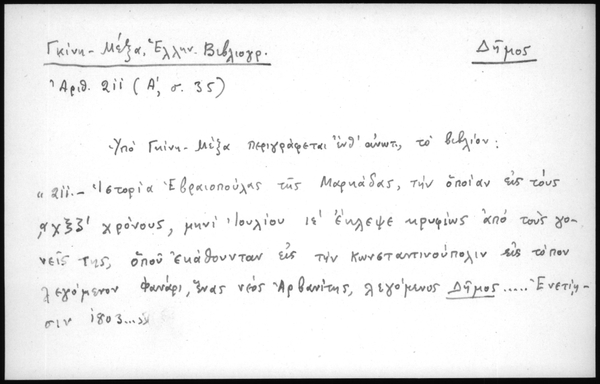 Γκίνη - Μέξα, Ἑλλην. Βιβλιογρ.
Δῆμος
Ἀριθ. 211 (Α', σ. 35)
Ὑπό Γκίνη - Μέξα περιγράφεται ἔνθ' ἀνωτ, τό βιβλίον:
"211.- Ἱστορία Ἑβραιοπούλας τῆς Μαρκάδας, τήν ὁποίαν εἰς τούς
͵αχξξ' χρόνους, μηνί Ἰουλίου ιε' ἔκλεψε κρυφίως ἀπό τούς γο-
νεῖς της, ὁποῦ ἐκάθουνταν εἰς τήν Κωνσταντινούπολιν εἰς τόπον
λεγόμενον Φανάρι, ἕνας νεός Ἀρβανίτης, λεγόμενος Δῆμος..... Ἐνετίῃ-
σιν 1803...»